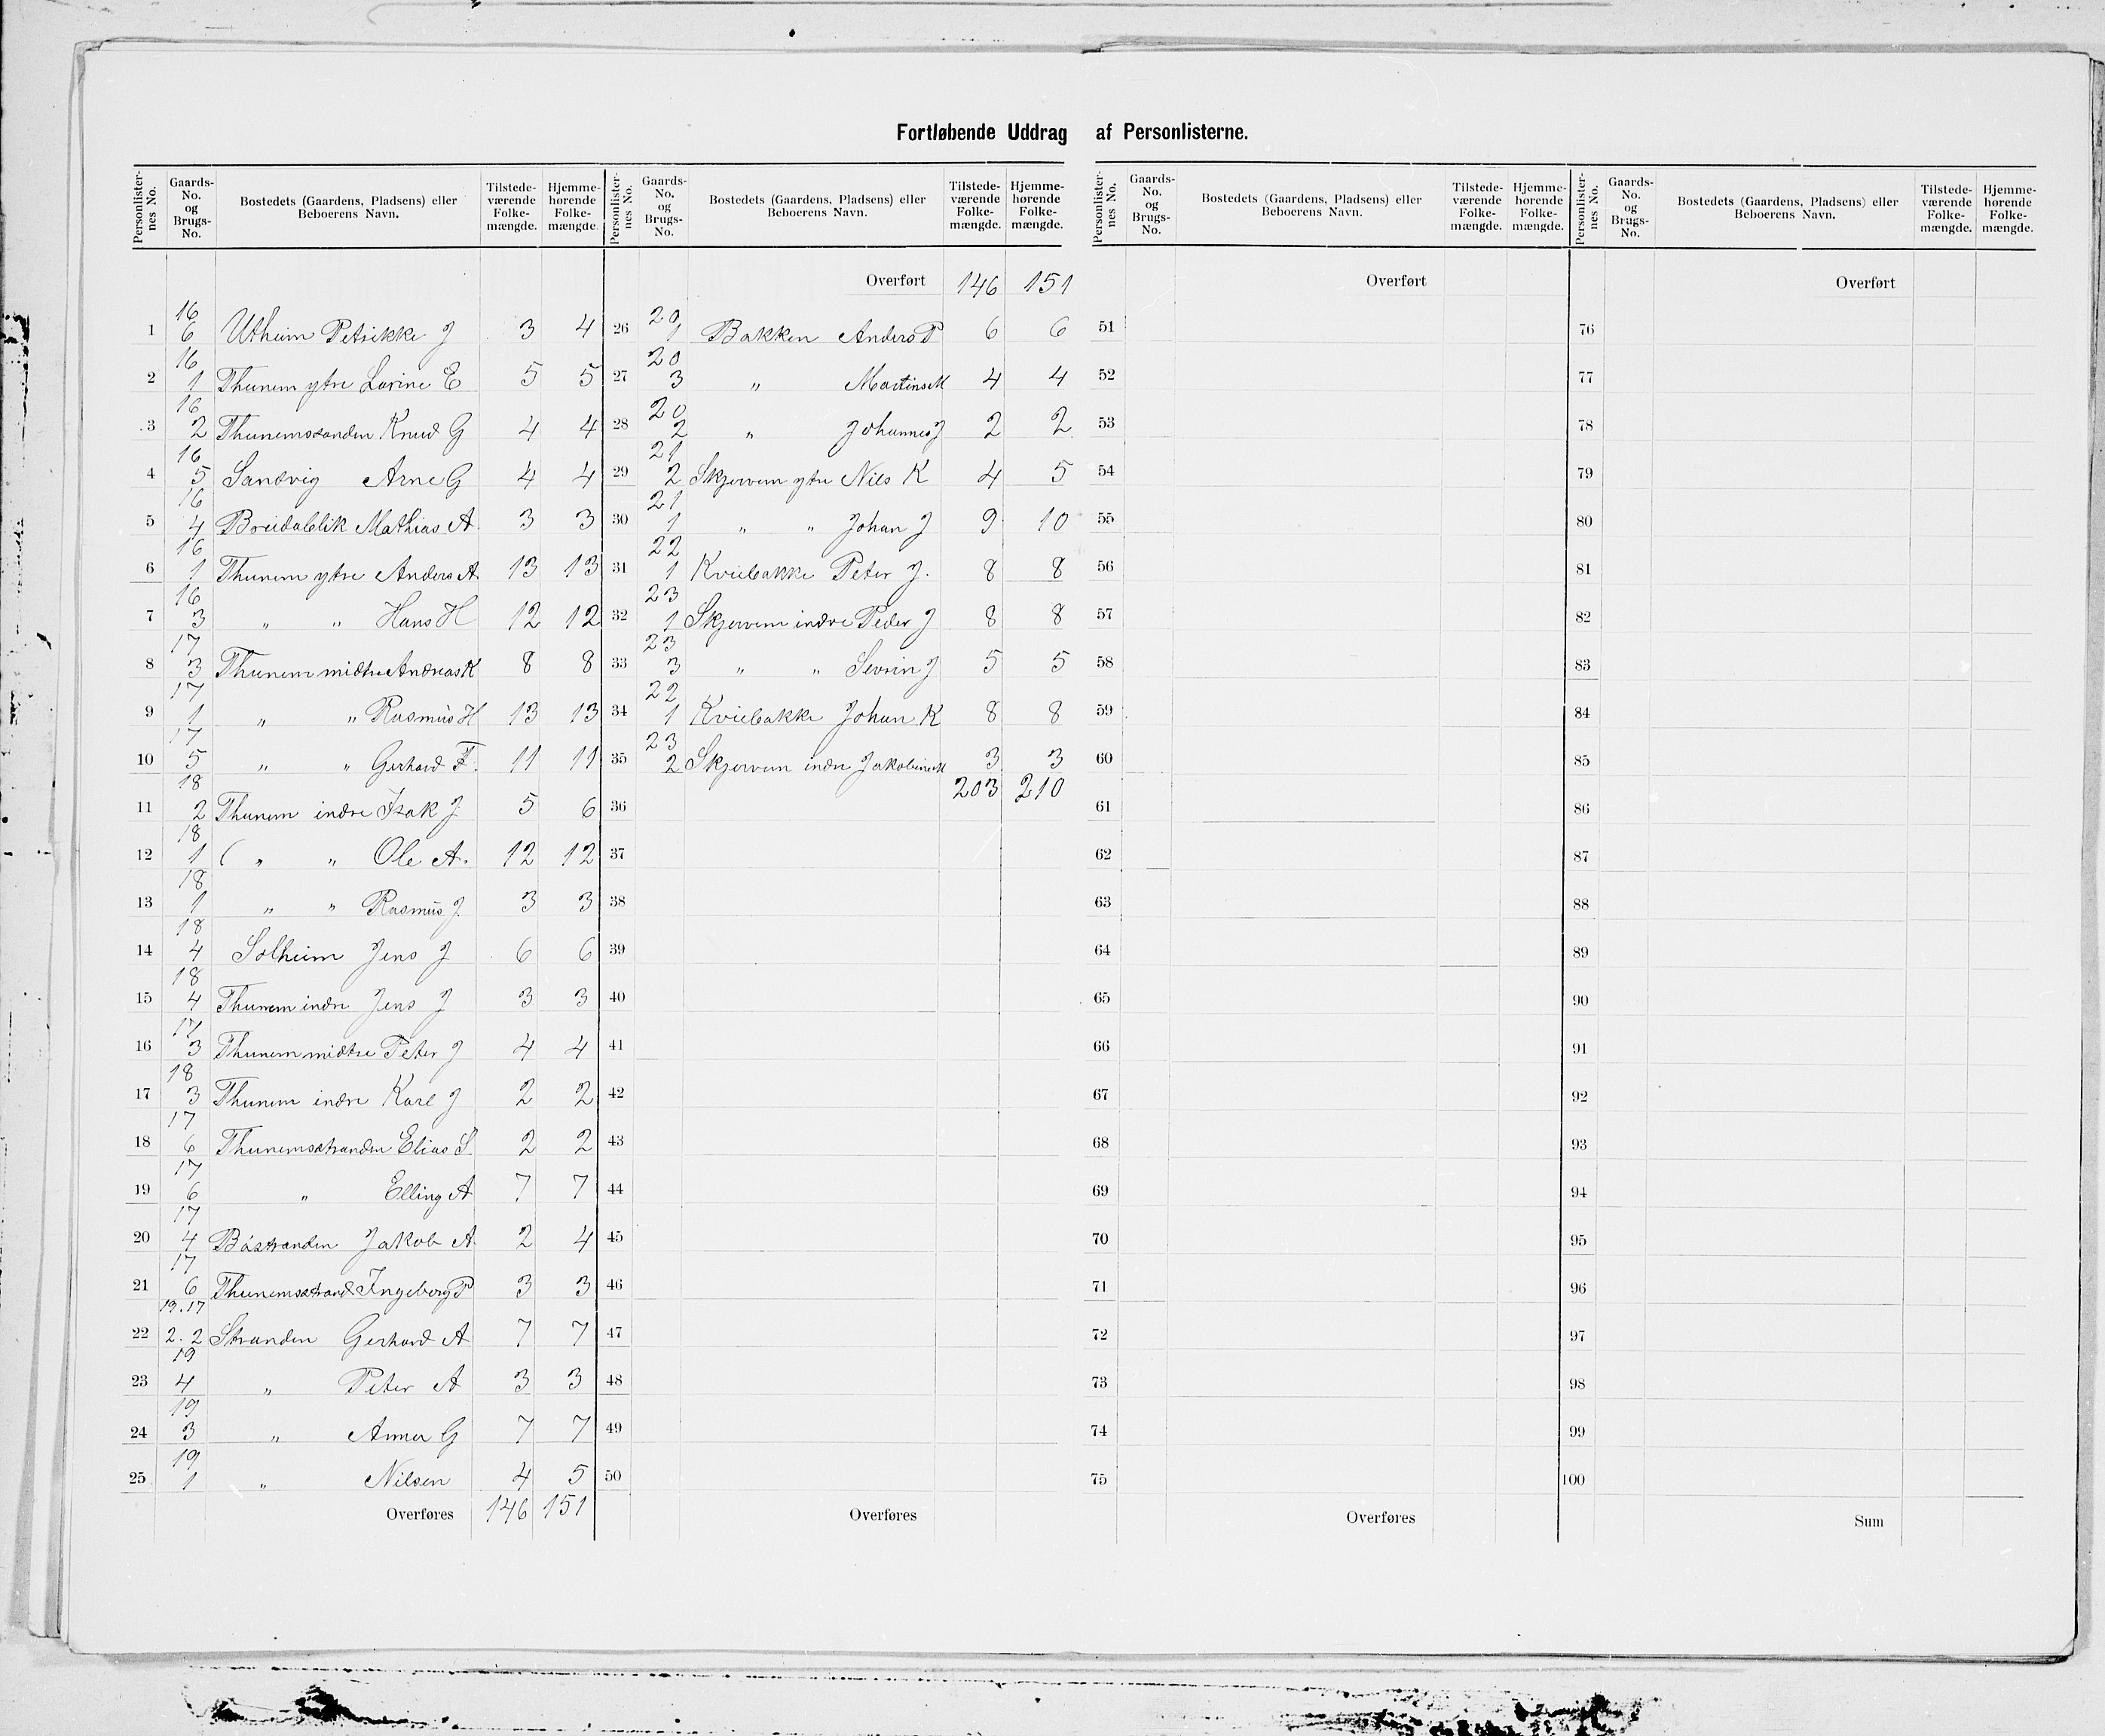 Fortløbende Uddrag af Personlisterne.
Personlisternes No. Gaards-No. og Brugs-No. Bostedets (Gaardens, Pladsens) eller Beboerens Navn. Tilstedeværende Folkemængde. Hjemmehørende Folkemængde.
1 16 6 Utheim Petrikke J 3 4
2 16 1 Thunem ytre Larine E 5 5
3 16 2 Thunemstranden Knud G 4 4
4 16 5 Sandvig Arne G 4 4
5 16 4 Breidablik Mathias A 3 3
6 16 1 Thunem ytre Anders A 13 13
7 16 3 " " Hans H 12 12
8 17 3 Thunem midtre Andreas K 8 8
9 17 1 " " Rasmus H 13 13
10 17 5 " " Gerhard F. 11 11
11 18 2 Thunem indre Isak J 5 6
12 18 1 ( " " Ole A. 12 12
13 18 1 " " Rasmus J 3 3
14 18 4 Solheim Jens J 6 6
15 18 4 Thunem indre Jens J 3 3
16 17 3 Thunem midtre Peter J 4 4
17 18 3 Thunem indre Karl J 2 2
18 17 6 Thunemstranden Elias S 2 2
19 17 6 " Elling A 7 7
20 17 4 Båstranden Jakob A 2 4
21 17 6 Thunemstrand Ingeborg P 3 3
22 19.17 2.2 Stranden Gerhard A 7 7
23 19 4 " Peter A 3 3
24 19 3 " Anna G 7 7
25 19 1 " Nilsen 4 5
Overføres 146 151
Personlisternes No. Gaards-No. og Brugs-No. Bostedets (Gaardens, Pladsens) eller Beboerens Navn. Tilstedeværende Folkemængde. Hjemmehørende Folkemængde.
Overført 146 151
26 20 1 Bakken Anders P 6 6
27 20 3 " Martinus M 4 4
28 20 2 " Johannes J 2 2
29 21 2 Skjervem ytre Nils K 4 5
30 21 1 " " Johan J 9 10
31 22 1 Kviebakke Peter J. 8 8
32 23 1 Skjervem indre Peder J 8 8
33 23 3 " " Sevrin J 5 5
34 22 1 Kviebakke Johan K 8 8
35 23 2 Skjervem indre Jakobine M 3 3
203 210
36
37
38
39
40
41
42
43
44
45
46
47
48
49
50
Overføres
Personlisternes No. Gaards-No. og Brugs-No. Bostedets (Gaardens, Pladsens) eller Beboerens Navn. Tilstedeværende Folkemængde. Hjemmehørende Folkemængde.
Overført
51
52
53
54
55
56
57
58
59
60
61
62
63
64
65
66
67
68
69
70
71
72
73
74
75
Overføres
Personlisternes No. Gaards-No. og Brugs-No. Bostedets (Gaardens, Pladsens) eller Beboerens Navn. Tilstedeværende Folkemængde. Hjemmehørende Folkemængde.
Overført
76
77
78
79
80
81
82
83
84
85
86
87
88
89
90
91
92
93
94
95
96
97
98
99
100
Sum